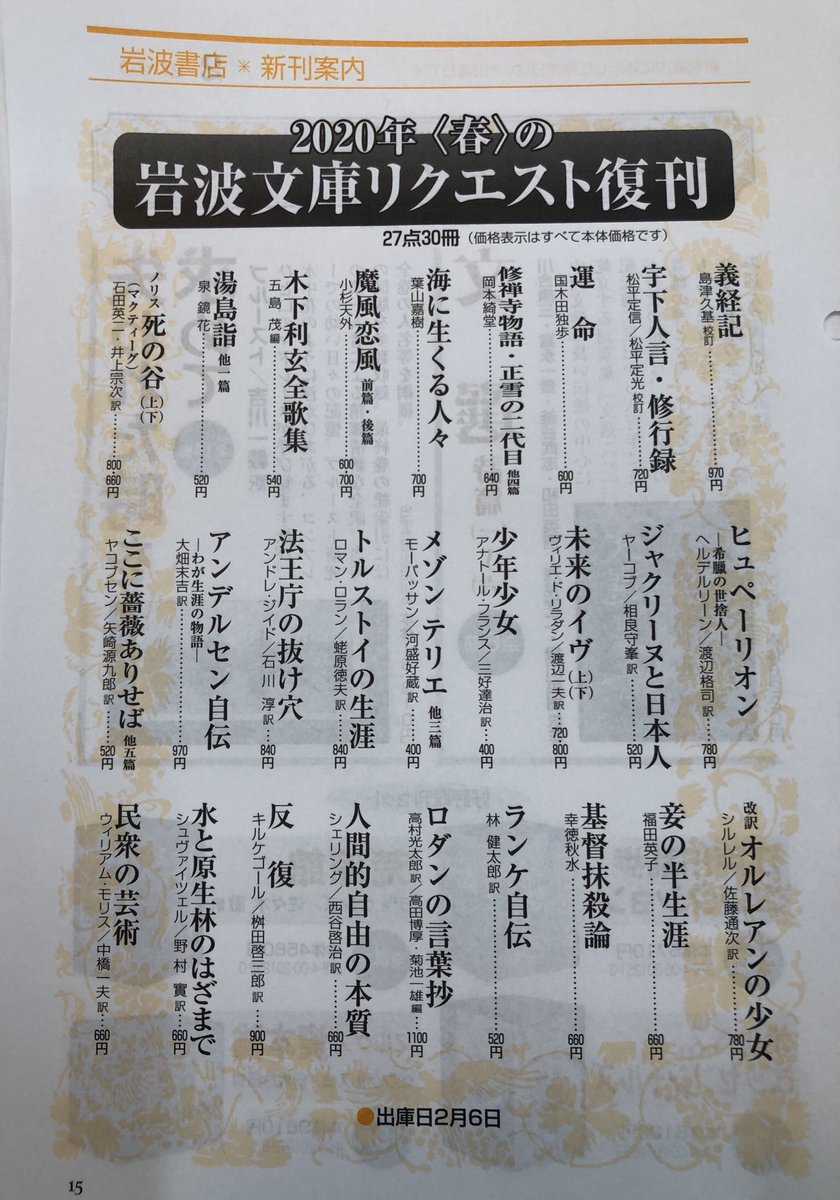 岩波書店＊新刊案内
2020年〈春〉の
岩波文庫リクエスト復刊
27点30冊（価格表示はすべて本体価格です）
義経記
島津久基 校訂……970円
宇下人言・修行録
松平定信／松平定光 校訂……720円
運命
国木田独歩……600円
修禅寺物語・正雪の二代目 他四篇
岡本綺堂……640円
海に生くる人々
葉山嘉樹……700円
魔風恋風 前篇・後篇
小杉天外……600 700円
木下利玄全歌集
五島茂 編……540円
湯島詣 他一篇
泉鏡花……520円
ノリス 死の谷（上）（下）
（マクティーグ）
石田英二・井上宗次 訳……800 660円
ヒュペーリオン
―希臘の世捨人―
ヘルデルリーン／渡辺格司 訳……780円
ジャクリーヌと日本人
ヤーコプ／相良守峯 訳……520円
未来のイヴ（上）（下）
ヴィリエ・ド・リラダン／渡辺一夫 訳……720 800円
少年少女
アナトール・フランス／三好達治 訳……400円
メゾン テリエ 他三篇
モーパッサン／河盛好蔵 訳……400円
トルストイの生涯
ロマン・ロラン／蛯原徳夫 訳……840円
法王庁の抜け穴
アンドレ・ジイド／石川淳 訳……840円
アンデルセン自伝
―わが生涯の物語―
大畑末吉 訳……970円
ここに薔薇ありせば 他五篇
ヤコブセン／矢崎源九郎 訳……520円
改訳 オルレアンの少女
シルレル／佐藤通次 訳……780円
妾の半生涯
福田英子……660円
基督抹殺論
幸徳秋水……660円
ランケ自伝
林健太郎 訳……520円
ロダンの言葉抄
高村光太郎 訳／高田博厚・菊池一雄 編……1100円
人間的自由の本質
シェリング／西谷啓治 訳……660円
反復
キルケゴール／桝田啓三郎 訳……900円
水と原生林のはざまで
シュヴァイツェル／野村實 訳……660円
民衆の芸術
ウィリアム・モリス／中橋一夫 訳……660円
●出庫日2月6日
15